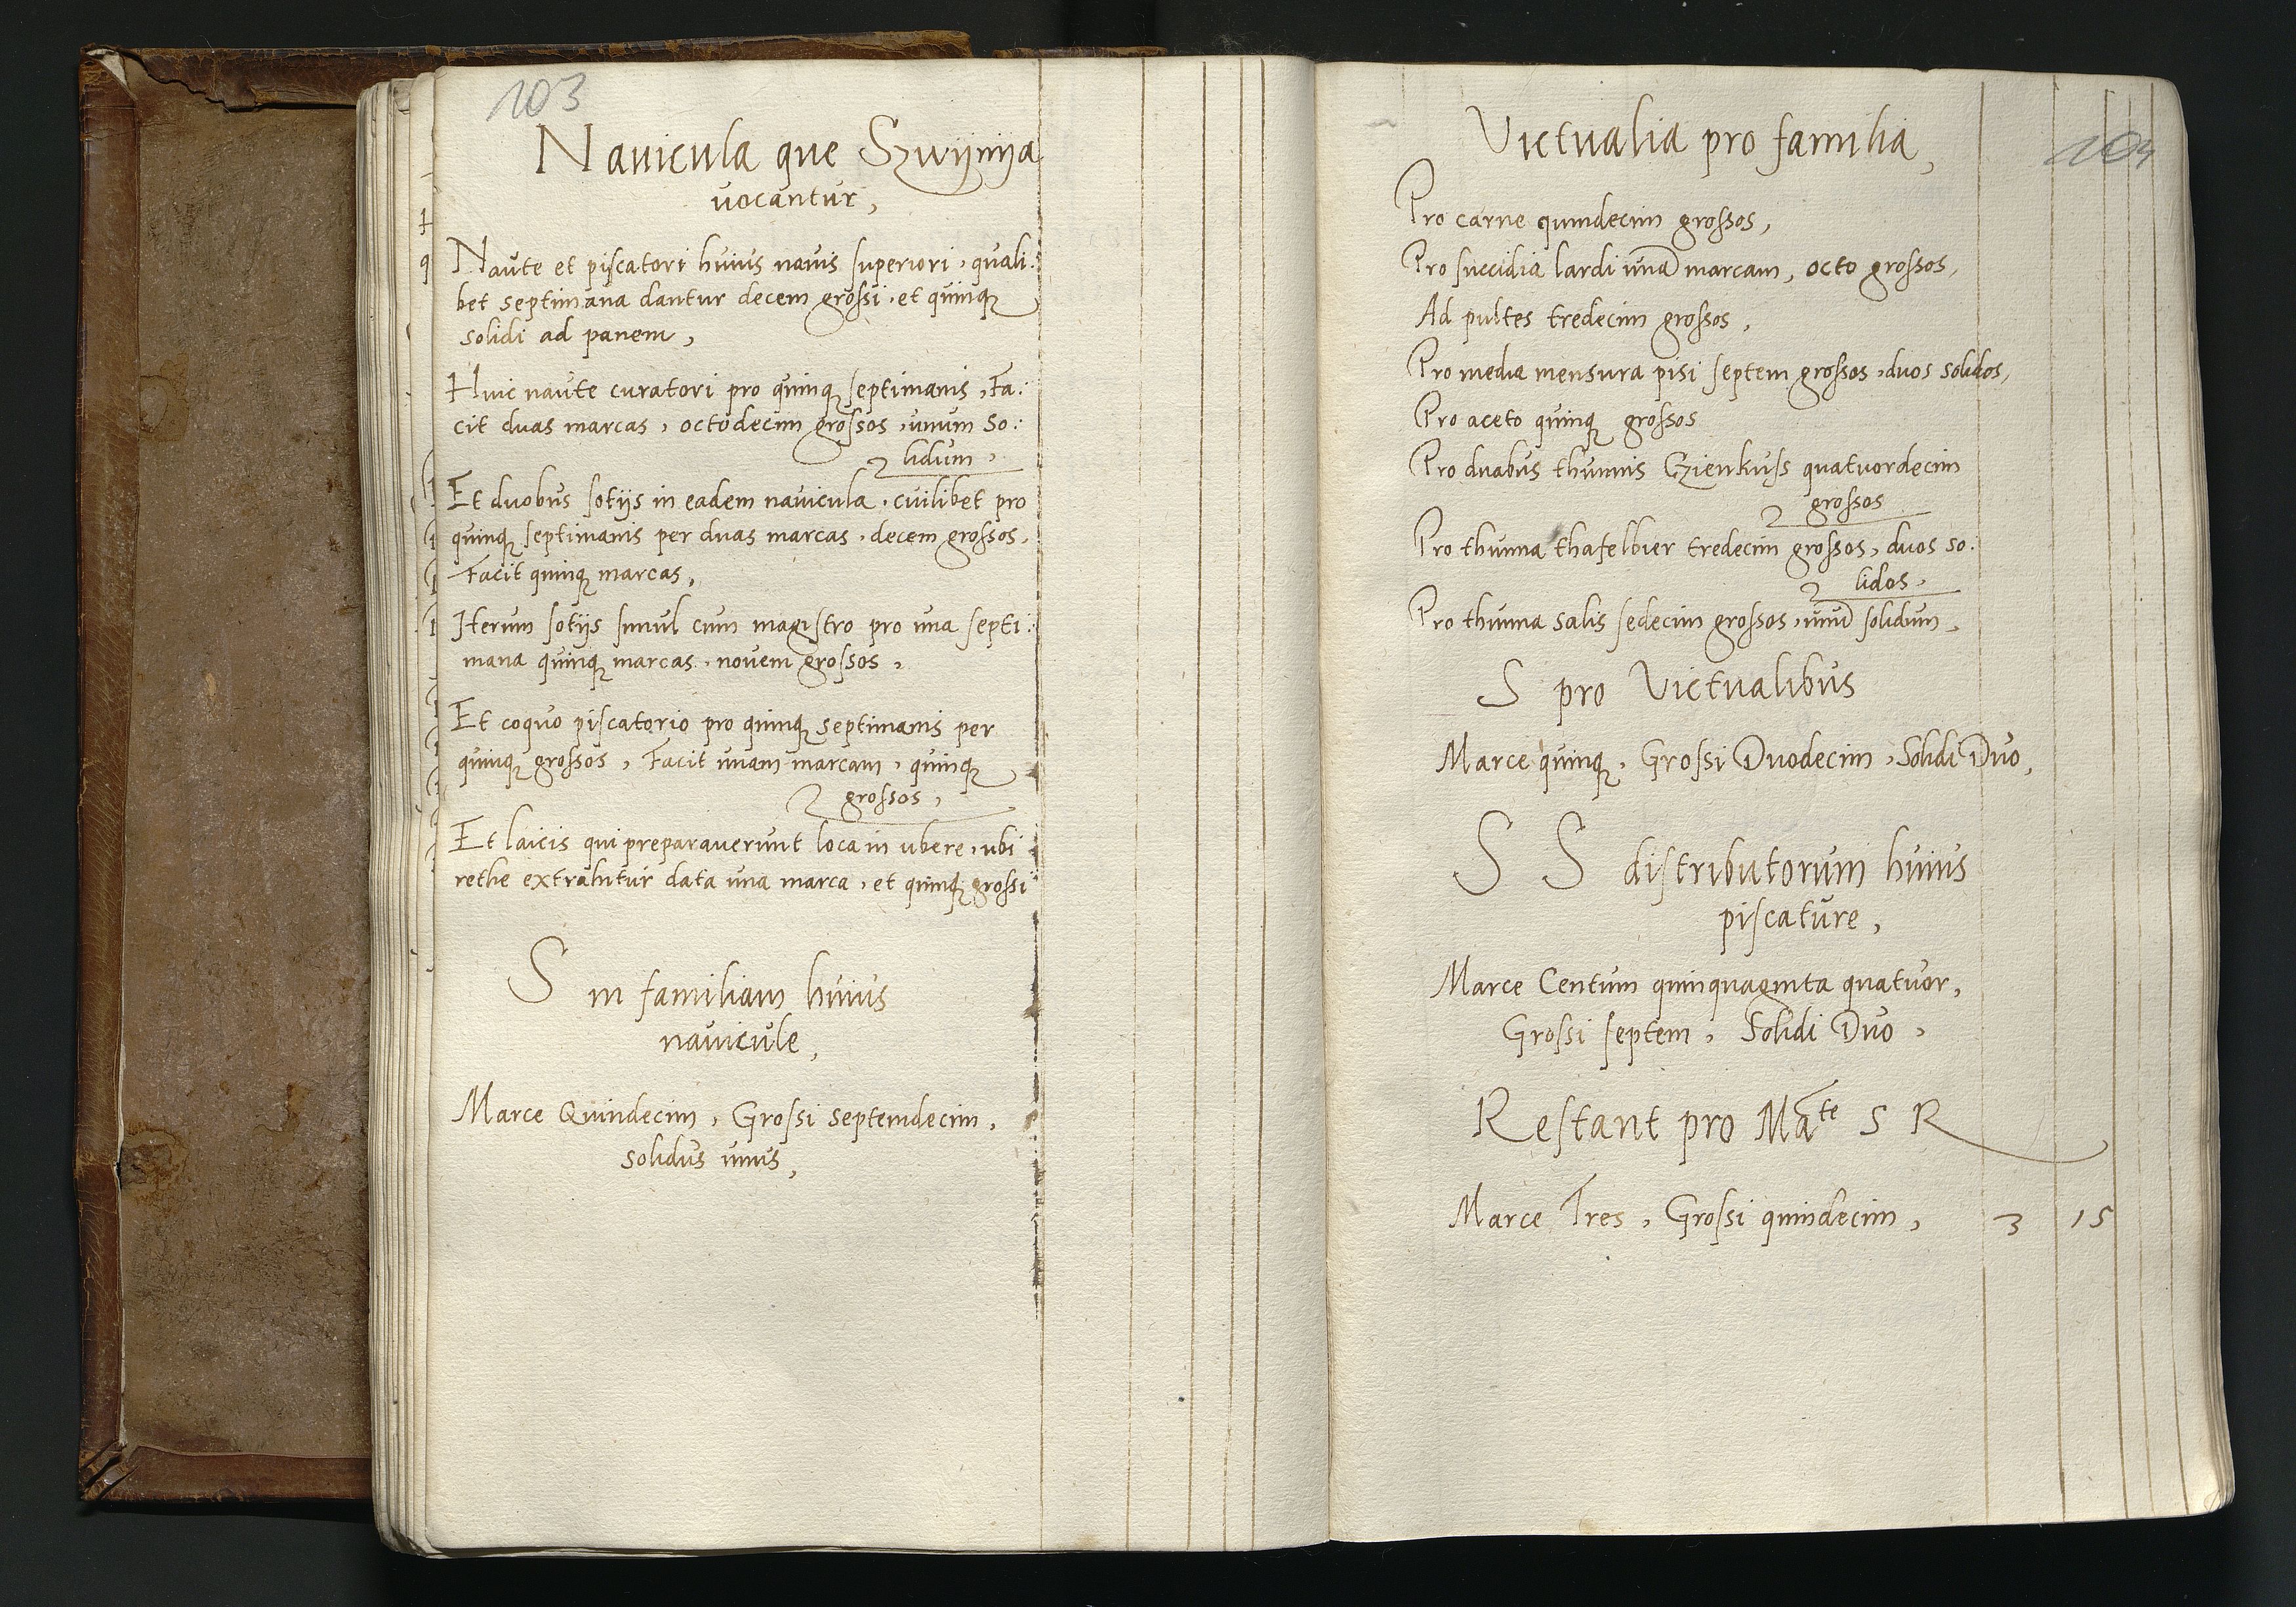 103
Nauicula que Szwÿnÿa
uocantur,
Naute et piscatori huius nauis superiori, quali:
bet septimana dantur decem grossi, et quinqȝ
solidi ad panem,
Huic naute curatori pro quinqȝ septimanis, Fa:
cit duas marcas, octodecim grossos, unum So:
lidum,
Et duobus sotijs in eadem nauicula, cuilibet pro
quinqȝ septimanis per duas marcas, decem grossos,
Facit quinqȝ marcas,
Iterum sotijs simul cum magistro pro una septi:
mana quinqȝ marcas, nouem grossos,
Et coquo piscatorio pro quinqȝ septimanis per
quinqȝ grossos, Facit unam marcam, quinqȝ
grossos,
Et laicis qui preparauerunt loca in ubere, ubi
rethe extrahitur data una marca, et quinqȝ grossi
S in familiam huius
nauicule,
Marce Quindecim, Grossi septemdecim,
solidus unus,
104
Victualia pro familia,
Pro carne quindecim grossos,
Pro succidia lardi unā marcam, octo grossos,
Ad pultes tredecim grossos,
Pro media mensura pisi septem grossos, duos solidos,
Pro aceto quinqȝ grossos
Pro duabus thunnis Czienkuss quatuordecim
grossos
Pro thunna thafelbier tredecim grossos, duos so:
lidos,
Pro thunna salis sedecim grossos, unū solidum,
S pro Victualibus
Marce quinqȝ, Grossi Duodecim, Solidi Duo,
S S distributorum huius
piscature,
Marce Centum quinquaginta quatuor,
Grossi septem, Solidi Duo,
Restant pro Māte S R
Marce Tres, Grossi quindecim, 3 15